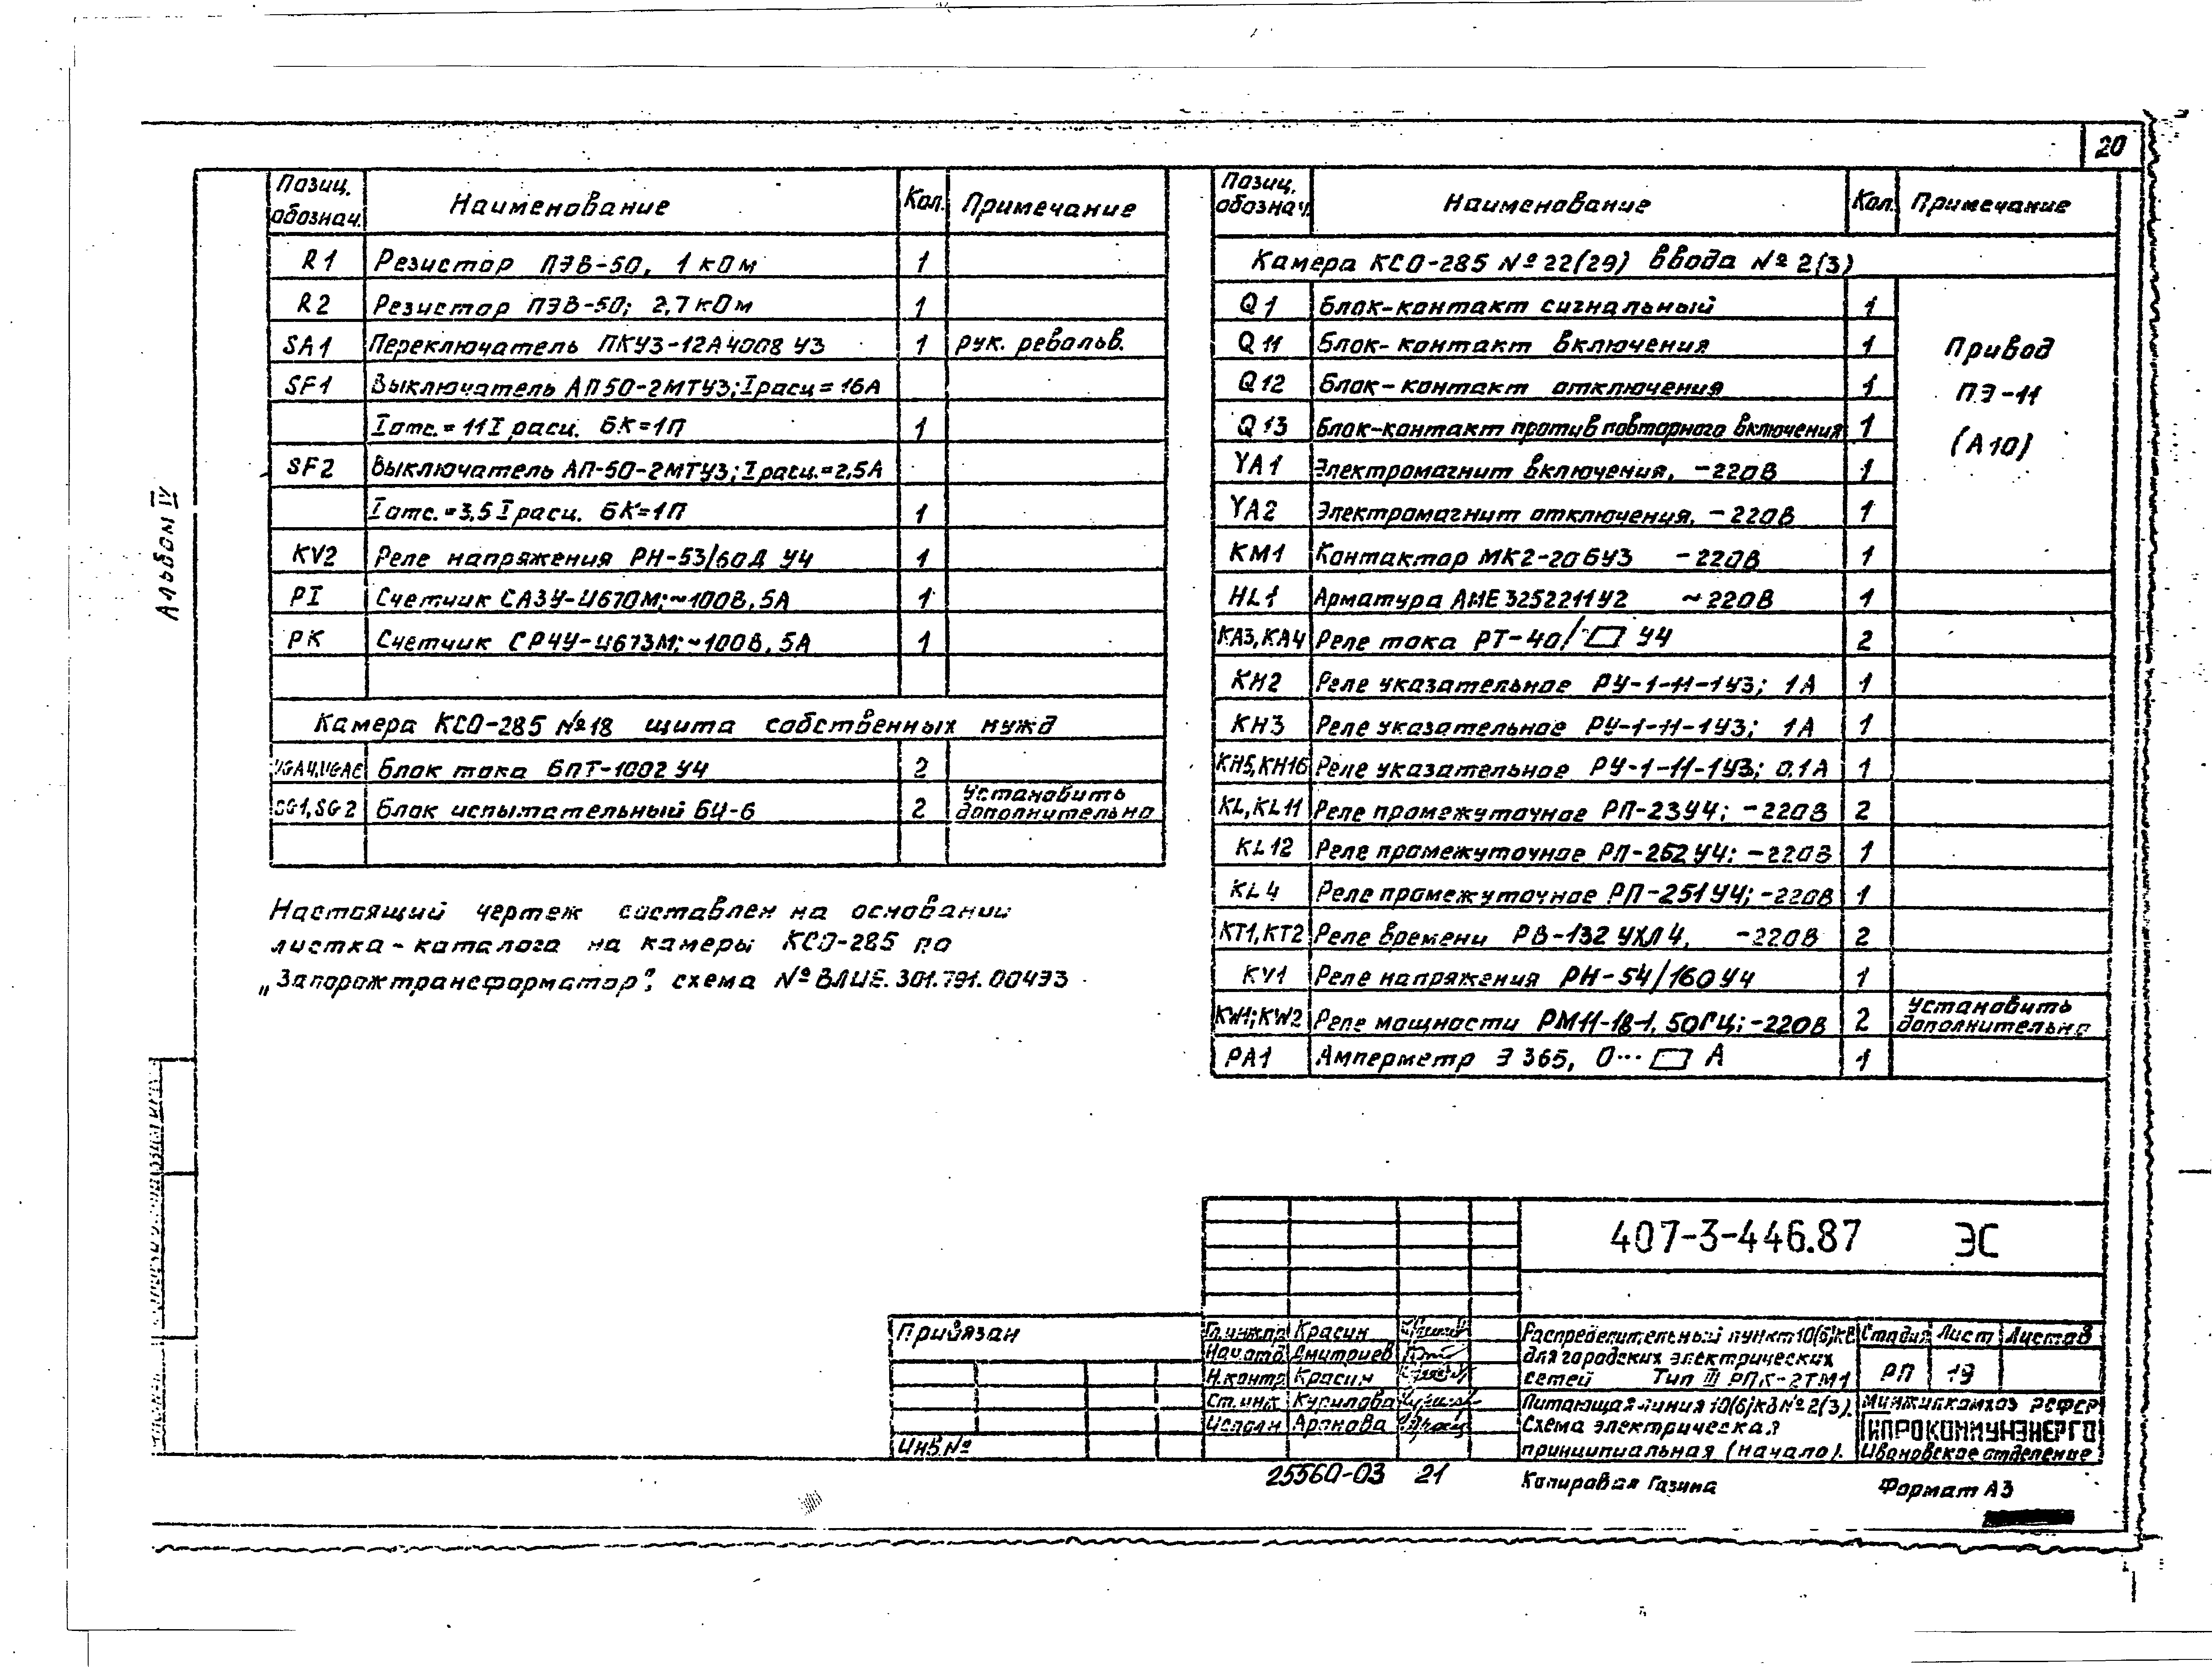 20
Альбом IV
Позиц. обознач. Наименование Кол. Примечание
R1 Резистор ПЭВ-50, 1 кОм 1
R2 Резистор ПЭВ-50; 2,7 кОм 1
SA1 Переключатель ПКУЗ-12А4008 У3 1 рук. револьв.
SF1 Выключатель АП50-2МТУ3; Iрасц = 16А
Iотс. = 11 I расц. БК=1П 1
SF2 Выключатель АП-50-2МТУ3; Iрасц. = 2,5А
Iотс. = 3,5 I расц. БК=1П 1
KV2 Реле напряжения РН-53/60Д У4 1
PI Счетчик СА3У-И670М; ~100В, 5А 1
PK Счетчик СР4У-И673М; ~100В, 5А 1
Камера КСО-285 №18 щита собственных нужд
Блок тока БПТ-1002 У4 2
SG1, SG2 Блок испытательный БИ-6 2 Установить дополнительно
Настоящий чертеж составлен на основании
листка-каталога на камеры КСО-285 по
„Запорожтрансформатор", схема № ВЛИЕ.301.791.004Э3
Позиц. обознач. Наименование Кол. Примечание
Камера КСО-285 № 22(29) ввода № 2(3)
Q1 Блок-контакт сигнальный 1
Q11 Блок-контакт включения 1
Q12 Блок-контакт отключения 1
Q13 Блок-контакт против повторного включения 1
YA1 Электромагнит включения, -220В 1
YA2 Электромагнит отключения, -220В 1
KM1 Контактор МК2-20БУ3 -220В 1
Привод
ПЭ-11
(А10)
HL1 Арматура АМЕ325221У2 ~220В 1
KA3, KA4 Реле тока РТ-40/▭ У4 2
KH2 Реле указательное РУ-1-11-1У3; 1А 1
KH3 Реле указательное РУ-1-11-1У3; 1А 1
KH5, KH16 Реле указательное РУ-1-11-1У3; 0.1А 1
KL, KL11 Реле промежуточное РП-23У4; -220В 2
KL12 Реле промежуточное РП-252 У4; -220В 1
KL4 Реле промежуточное РП-251 У4; -220В 1
KT1, KT2 Реле времени РВ-132 УХЛ4, -220В 2
KV1 Реле напряжения РН-54/160У4 1
KW1; KW2 Реле мощности РМ11-18-1, 50ГЦ; -220В 2 Установить дополнительно
PA1 Амперметр Э 365, 0...▭ А 1
407-3-446.87 ЭС
Привязан
Инв.№
Гл.инж.пр Красин
Нач.отд Дмитриев
Н.контр Красин
Ст.инж Курилова
Исполн Аранова
Распределительный пункт 10(6)кВ
для городских электрических
сетей Тип III РПК-2ТМ1
Стадия Лист Листов
РП 19
Питающая линия 10(6)кВ № 2(3).
Схема электрическая
принципиальная (начало).
Минжилкомхоз РСФСР
ГИПРОКОММУНЭНЕРГО
Ивановское отделение
25560-03 21
Копировал Газина
Формат А3